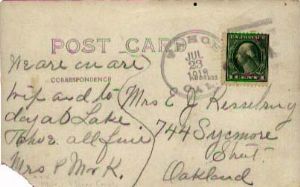 POST CARD
TAHOE
JUL
23
1918
CAL.
We are on our
CORRESPONDENCE
trip and to
day at Lake
Tahoe all fine
Mrs & Mr K.
Mrs E J Kesseburg
744 Sycmore
Oakland